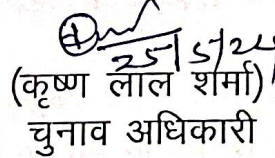 25/5/24
(कृष्ण लाल शर्मा)
चुनाव अधिकारी